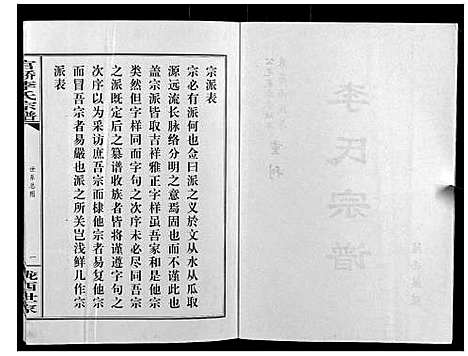 李氏宗譜
重刊
宗派表
宗必有派何也僉曰派之义於文从水从瓜取
源远流长脉络分明之意焉固也而不谨此也
盖宗派皆取吉祥雅正字样虽吾家和是他宗
类然但字样同而字句之次序未必尽同吾宗
之派既定后之纂谱收族者皆将谨遵字句
次序以为采访庶吾宗而棣他宗者易复他宗
而冒吾宗者易严也派之所关岂浅鲜儿作宗
派表
官桥李氏宗谱
世系总图
一
陇西世家